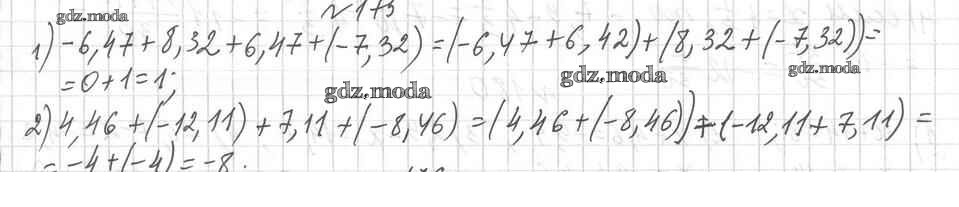 № 173
1) -6,47 + 8,32 + 6,47 + (-7,32) = (-6,47 + 6,42) + (8,32 + (-7,32)) =
= 0 + 1 = 1;
2) 4,46 + (-12,11) + 7,11 + (-8,46) = (4,46 + (-8,46)) + (-12,11 + 7,11) =
= -4 + (-4) = -8.
gdz.moda
gdz.moda
gdz.moda
gdz.moda